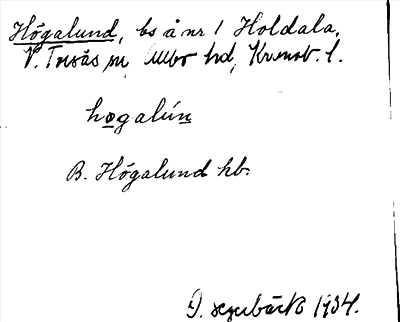 Högalund, bs å nr 1 Holdala,
V. Torsås sn, Allbo hd, Kronob. l.
hogalún
B. Högalund hb.
1934.